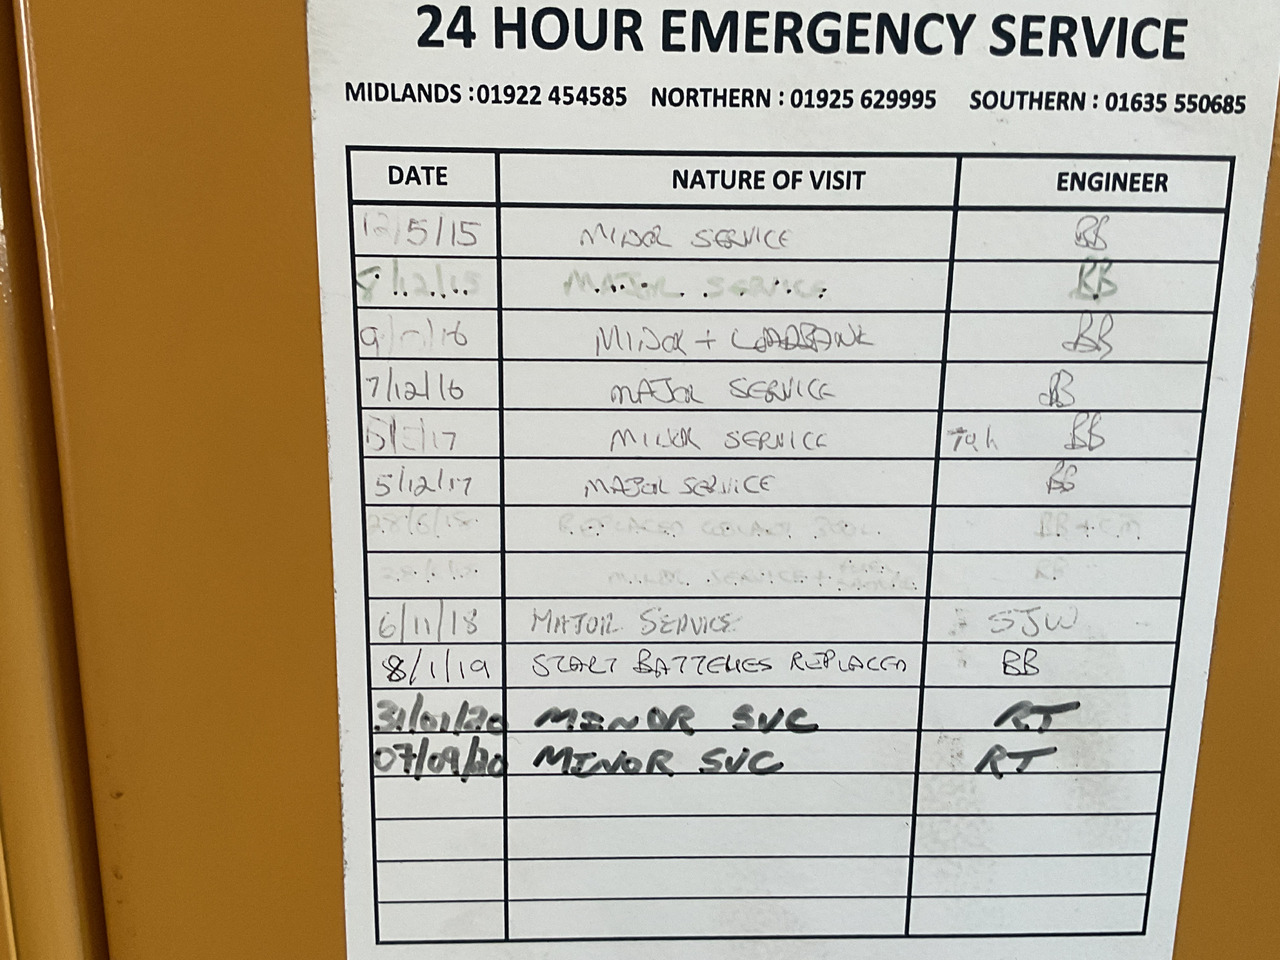 24 HOUR EMERGENCY SERVICE
MIDLANDS : 01922 454585 NORTHERN : 01925 629995 SOUTHERN : 01635 550685
DATE NATURE OF VISIT ENGINEER
12/5/15 MINOR SERVICE BB
8/12/15 MAJOR SERVICE BB
MINOR + LOADBANK BB
7/12/16 MAJOR SERVICE BB
MINOR SERVICE BB
5/12/17 MAJOR SERVICE BB
28/6/18 REPLACED COOLANT BB + CM
MINOR SERVICE + FUEL SAMPLE BB
6/11/18 MAJOR SERVICE SJW
8/1/19 START BATTERIES REPLACED BB
31/01/20 MINOR SVC RT
07/09/20 MINOR SVC RT